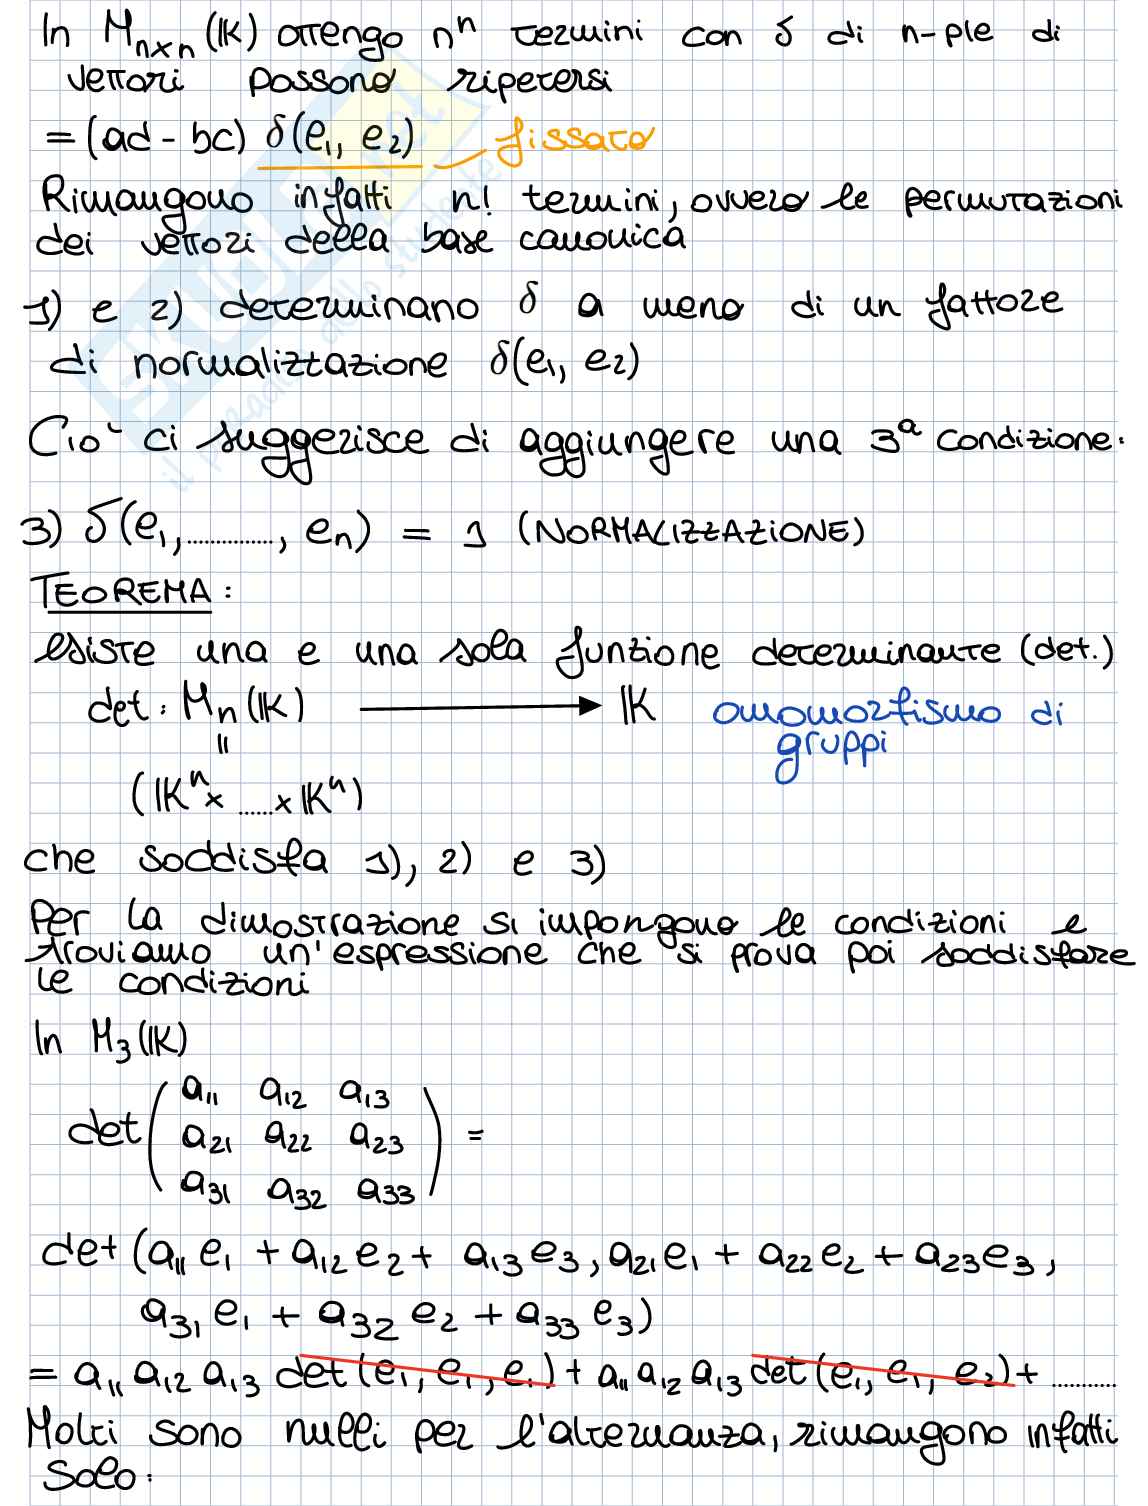 In Mₙₓₙ(𝕂) ottengo nⁿ termini con δ di n-ple di
vettori possono ripetersi
= (ad - bc) δ(e₁, e₂) fissato
Rimangono infatti n! termini, ovvero le permutazioni
dei vettori della base canonica
1) e 2) determinano δ a meno di un fattore
di normalizzazione δ(e₁, e₂)
Ciò ci suggerisce di aggiungere una 3ª condizione:
3) δ(e₁, ..............., eₙ) = 1 (NORMALIZZAZIONE)
TEOREMA:
esiste una e una sola funzione determinante (det.)
det: Mₙ(𝕂) ⟶ 𝕂 omomorfismo di
gruppi
||
(𝕂ⁿ × ...... × 𝕂ⁿ)
che soddisfa 1), 2) e 3)
Per la dimostrazione si impongono le condizioni e
troviamo un'espressione che si prova poi soddisfare
le condizioni
In M₃(𝕂)
a₁₁ a₁₂ a₁₃
det( a₂₁ a₂₂ a₂₃ ) =
a₃₁ a₃₂ a₃₃
det (a₁₁ e₁ + a₁₂ e₂ + a₁₃ e₃, a₂₁ e₁ + a₂₂ e₂ + a₂₃ e₃,
a₃₁ e₁ + a₃₂ e₂ + a₃₃ e₃)
= a₁₁ a₁₂ a₁₃ det (e₁, e₁, e₁) + a₁₁ a₁₂ a₁₃ det (e₁, e₁, e₂) + ...........
Molti sono nulli per l'alternanza, rimangono infatti
solo: